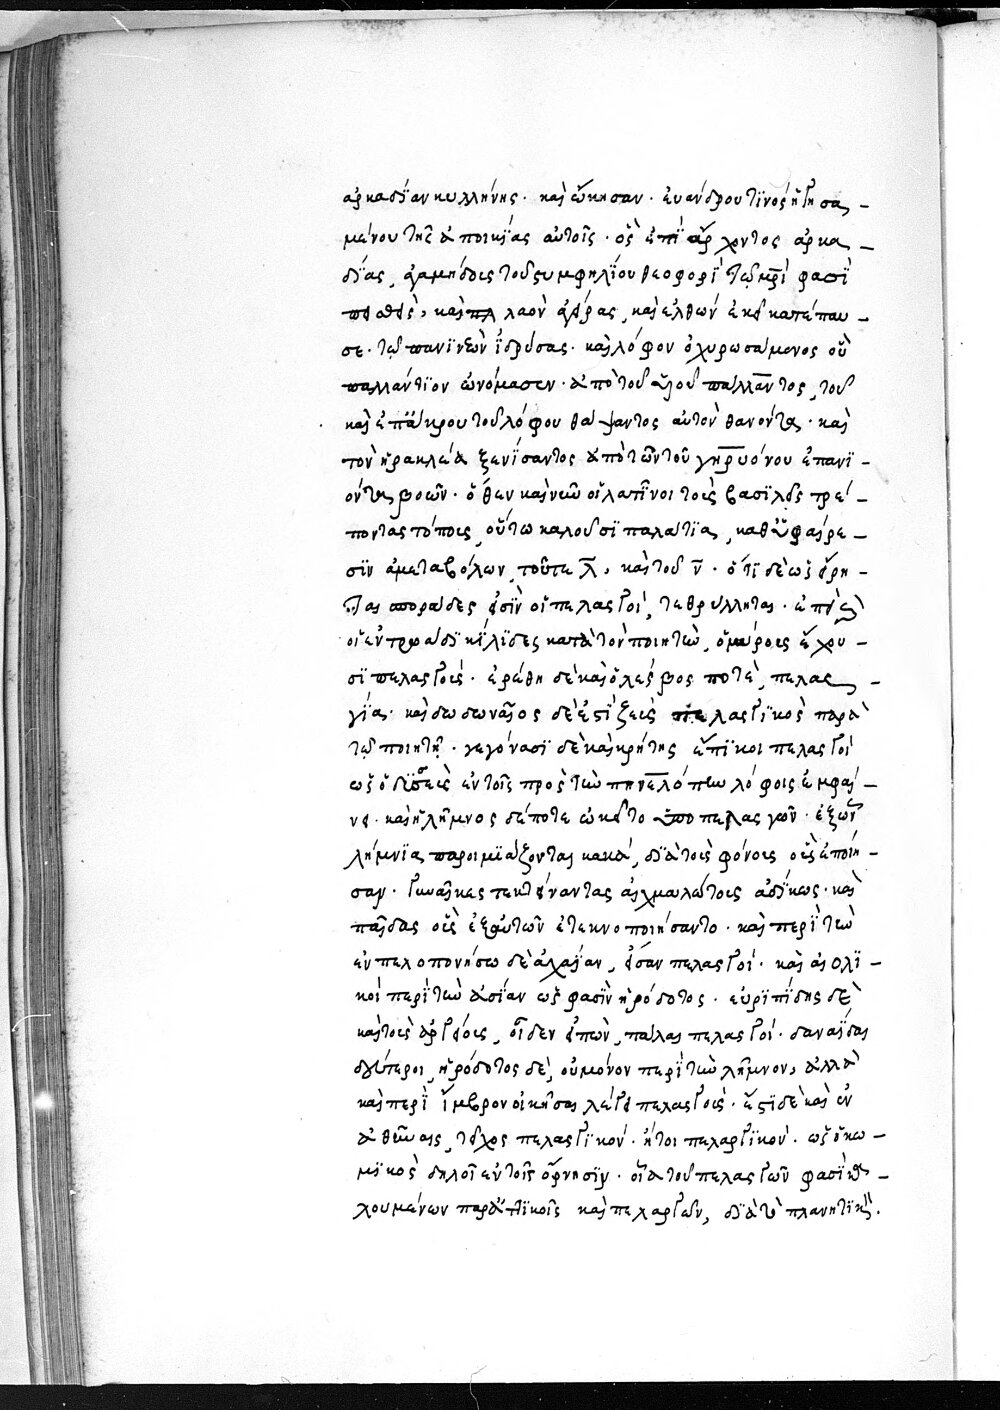 ἀρκαδίαν κυλλήνης· καὶ ὤκησαν· ἐυάνδρου τινός ἡγησα_
μένου τῆς ἀποικίας αὐτοῖς· ὃς ἐπὶ ἄρχοντος ἀρκα_
δίας, φασὶ
καὶ λαὸν ἀγείρας, καὶ ἐλθών ἐκεῖ κατέπαυ_
σε· τῷ πανὶ νεὼν ἱδρύσας· καὶ λόφον ὀχυρωσάμενος οὗ
παλλάντιον ὠνόμασεν· ἀπὸ τοῦ υἱοῦ πάλλαντος, τοῦ
καὶ ἐπάκρου τοῦ λόφου θάψαντος αὐτὸν θανόντα· καὶ
τὸν ἡρακλέα ξενίσαντος ἀπὸ τῶν τοῦ γηρυόνου ἐπανι_
όντα βοῶν· ὅθεν καὶ νῦν οἱ λατῖνοι τοὺς βασιλεῖς πρέ_
ποντας τόπους, οὕτω καλοῦσι παλάτια, καθ' ὑφαίρε_
σιν ἀμεταβόλων, τοῦτε λ, καὶ τοῦ ν· ὅτι δὲ ὡς εἴρη_
ται σποράδες εἰσὶν οἱ πελασγοί, τεθρύλληται· ἐπεὶ
οἱ ἐν τρωάδι κίλικες κατὰ τὸν ποιητὴν, ὁμόρους ἔχου_
σι πελασγούς· ἐρέθη δὲ καὶ ὅλη λέσβος ποτὲ, πελασ_
γία· καὶ δωδωναῖος δὲ ἐστι ζεὺς πελασγικὸς παρὰ
τῷ ποιητῇ· γεγόνασι δὲ καὶ κρήτης ἔποικοι πελασγοὶ
ὡς ὀδυσσεὺς ἐν τοῖς πρὸς τὴν πηνελόπην λόγοις ἐμφαί_
νει· καὶ ἡ λῆμνος δέ ποτε ὠκεῖτο ὑπὸ πελασγῶν· ἐξ ὧν
λήμνια παροιμιάζονται κακά, διὰ τοὺς φόνους οὓς ἐποίη_
σαν· γυναῖκας τεκτείναντας αἰχμαλώτους ἀδίκως· καὶ
παῖδας οὓς ἐξ αὐτῶν ἐτεκνοποιήσαντο· καὶ περὶ τὴν
ἐν πελοπονήσω δὲ ἀχαΐαν, ἦσαν πελασγοί· καὶ αἰολι_
κοὶ περὶ τὴν ἀσίαν ὡς φασὶν ἡρόδοτος· εὐριπίδης δὲ
καὶ τοὺς ἀργείους, οἶδεν εἰπὼν, πάλαι πελασγοί· δαναΐδαι
δεύτεροι, ἡρόδοτος δὲ, οὐ μόνον περὶ τὴν λῆμνον, ἀλλὰ
καὶ περὶ ἴμβρον οἰκῆσαι λέγει πελασγούς· ἔστι δὲ καὶ ἐν
ἀθήναις, τεῖχος πελασγικόν· ἤτοι πελαργικόν· ὡς ὁ κω_
μικὸς δηλοῖ ἐν τοῖς ὄρνησιν· οἷα τοῦ πελασγῶν φασὶ κα_
λουμένων παρ' ἀττικοῖς καὶ πελαργῶν, διὰ τὸ πλανητικόν.